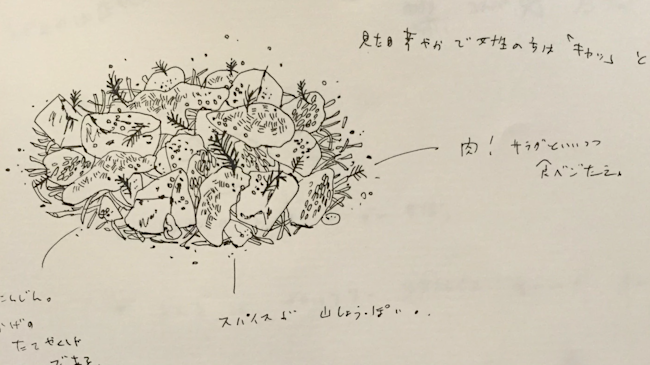 見た目華やかで女性の方は「キャッ」と
肉！サラダといいつつ
食べごたえ。
スパイスが 山しょうっぽい..
にんじん。
かげの
たてやくしゃ
である。